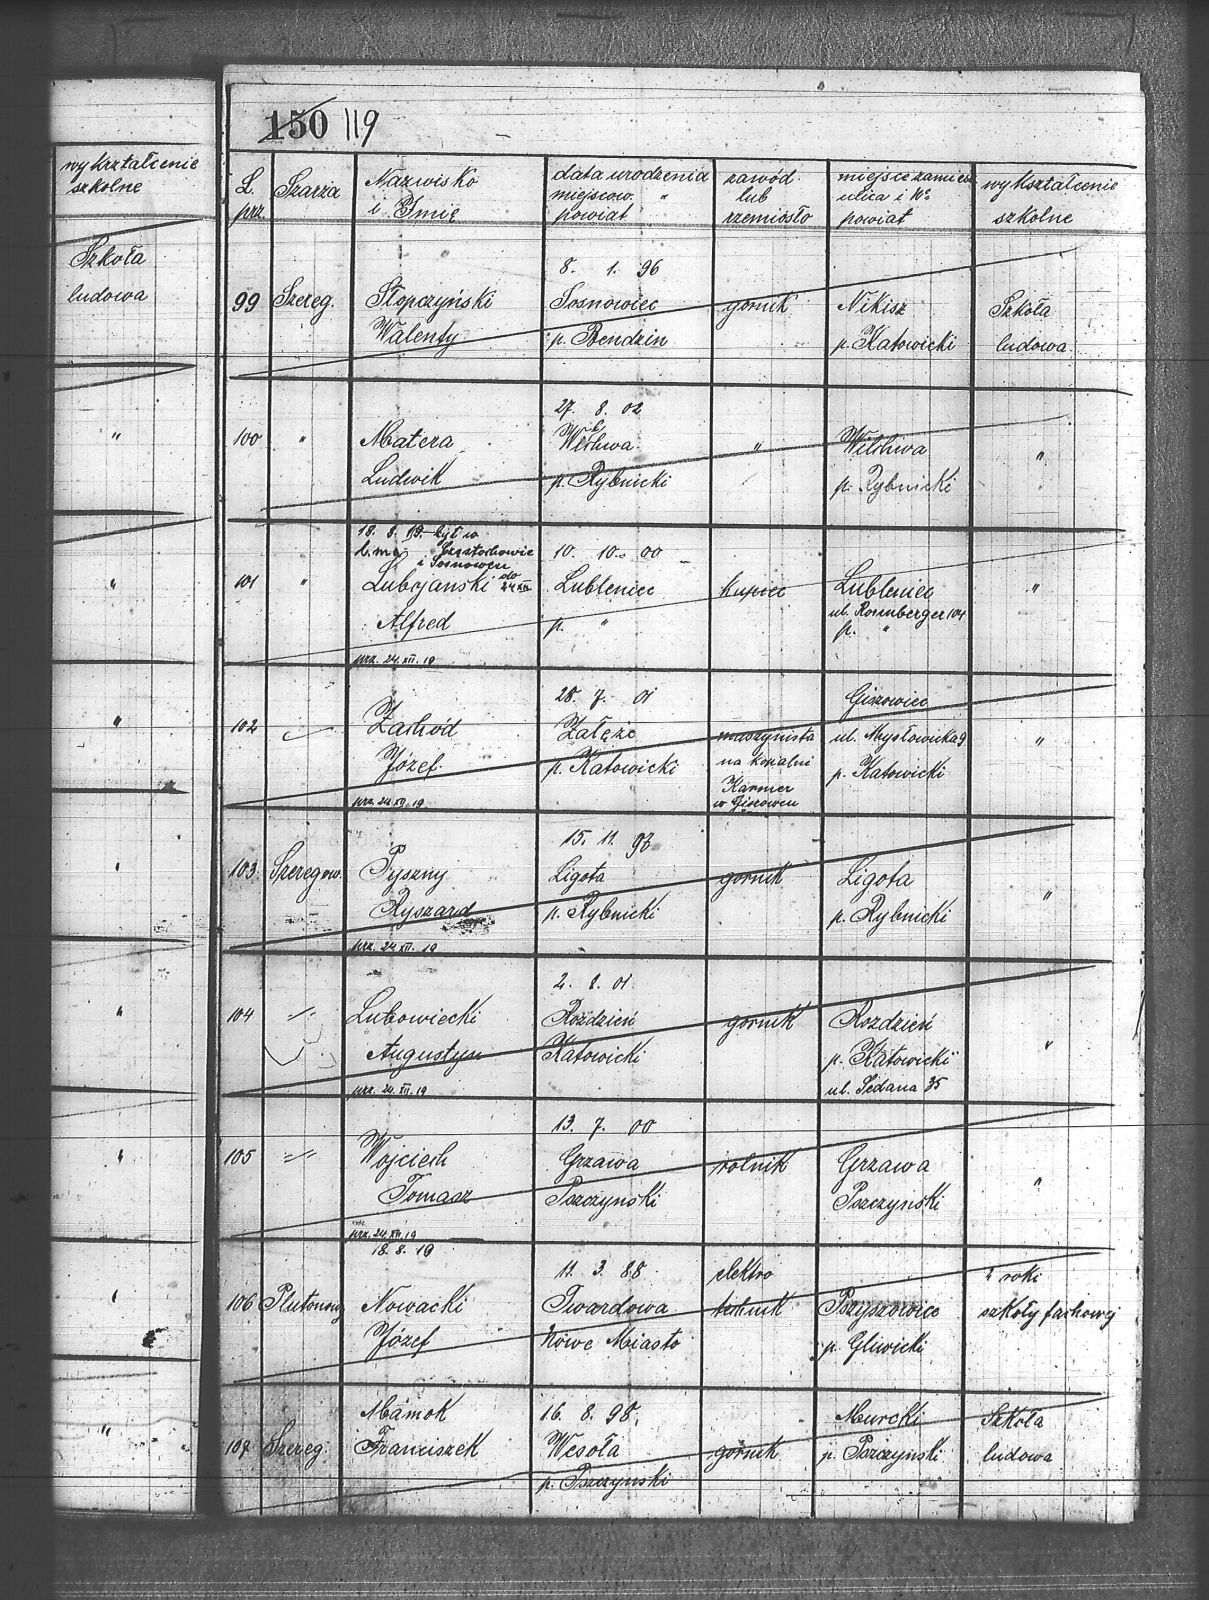 wykształcenie
szkolne
Szkoła
ludowa
"
"
"
"
"
"
150 119
L. prz.
Szarża
Nazwisko
i Imię
data urodzenia
miejscow. "
powiat
zawód
lub
rzemiosło
miejsce zamiesz
ulica i No
powiat
wykształcenie
szkolne
99
Szereg.
Słopczyński
Walenty
8. 1. 96
Sosnowiec
p. Bendzin
górnik
Nikisz
p. Katowicki
Szkoła
ludowa
100
"
Matera
Ludwik
27. 8. 02
p. Rybnicki
"
p. Rybnicki
"
101
"
18. 8. 19 był w
Częstochowie
i Sosnowcu
Lubojanski do 24 XII
Alfred
prz. 24. XII. 19
10. 10. 00
Lubleniec
p. "
kupiec
Lubleniec
ul. Rosenberger 104
p. "
"
102
Zachód
Józef
prz. 24 XII. 19
28. 7. 01
Załęże
p. Katowicki
maszynista
na kopalni
Karmer
w Giszowcu
Giszowiec
ul. Mysłowicka 9
p. Katowicki
"
103.
Szeregow.
Pyszny
Ryszard
prz. 24 XII. 19
15. 11. 93
Ligota
p. Rybnicki
górnik
Ligota
p. Rybnicki
"
104
"
Lubowiecki
Augustyn
prz. 24. XII. 19
2. 8. 01
Rozdzień
Katowicki
górnik
Rozdzień
p. Katowicki
ul. Sedana 35
"
105
"
Wojciech
Tomasz
prz. 24 XII. 19
13. 7. 00
Grzawa
Pszczyński
rolnik
Grzawa
Pszczyński
"
106
Plutonowy
18. 8. 19
Nowacki
Józef
11. 3. 88
Twardowa
Nowe Miasto
elektro
technik
Przyszowice
p. Gliwicki
2 roki
szkoły fachowej
107
Szereg.
Mamok
Franciszek
16. 8. 98.
Wesoła
p. Pszczynski
górnik
Murcki
p. Pszczynski
Szkoła
ludowa